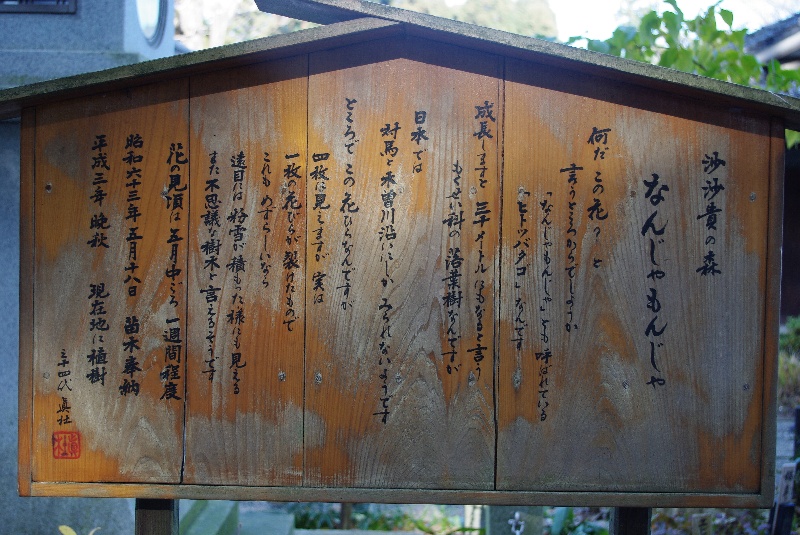 沙沙貴の森
なんじゃもんじゃ
何だ この花? と
言うところからでしようか
「なんじゃもんじゃ」とも 呼ばれている
「ヒトツバタゴ」なんです
成長しますと 三十メートルにもなると言う
もくせい科の 落葉樹なんですが
日本では
対馬と木曽川沿にしか みられないようです
ところで この花びらなんですが
四枚に見えますが 実は
一枚の花びらが 裂けたもので
これも めずらしいなら
遠目には 粉雪が積もった様にも見える
また 不思議な樹木と 言えるそうです
花の見頃は 五月中ごろ 一週間程度
昭和六十三年 五月十八日 苗木奉納
平成三年 晩秋 現在地に植樹
三十四代 眞社